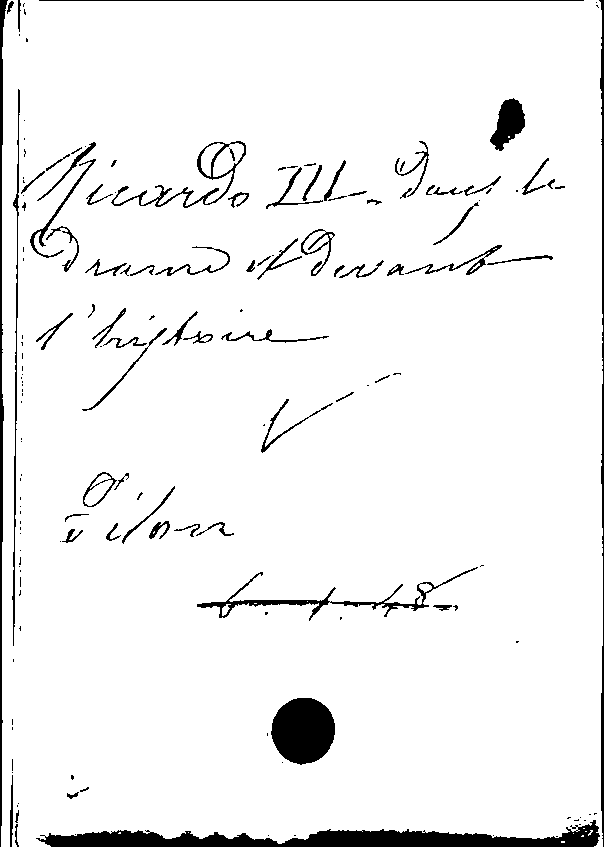 Ricardo III - Dans le
drame et devant
l'histoire
Pilon
6. 1. 48